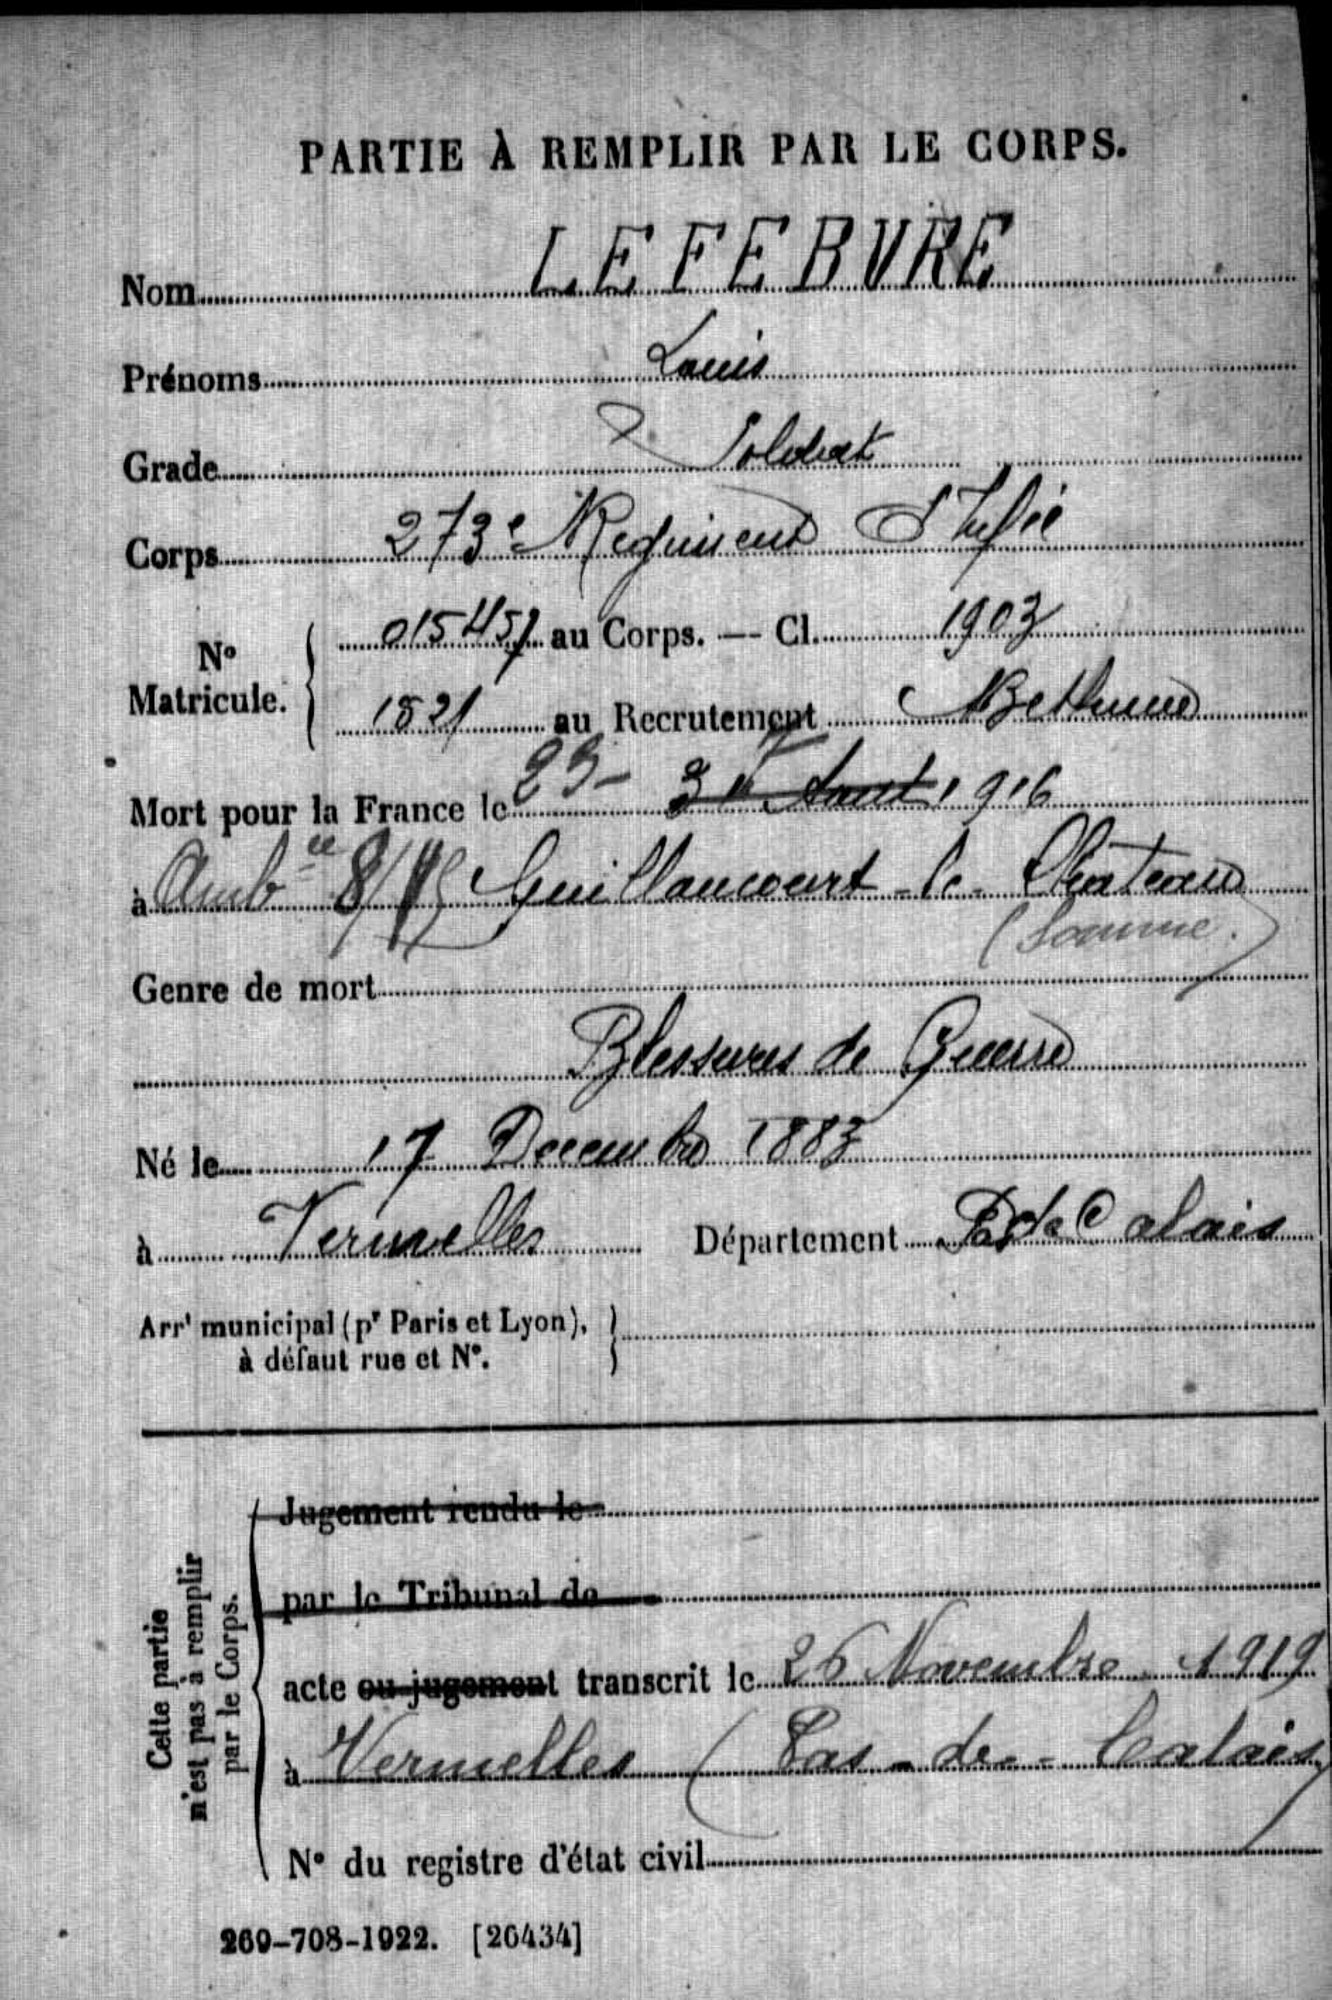 PARTIE À REMPLIR PAR LE CORPS.
Nom LEFEBVRE
Prénoms Louis
Grade Soldat
Corps 273e Regiment d'Inf.ie
No Matricule. 015457 au Corps. — Cl. 1903
1821 au Recrutement Bethune
Mort pour la France le 23- 3 Aout 1916
à Amb ce 8/ Guillaucourt-le-Chateau
(Somme.)
Genre de mort
Blessures de Guerre
Né le 17 Decembre 1883
à Vermelles Département P. de Calais
Arrt municipal (pr Paris et Lyon),
à défaut rue et No.
Cette partie
n'est pas à remplir
par le Corps.
Jugement rendu le
par le Tribunal de
acte ou jugement transcrit le 26 Novembre 1919
à Vermelles (Pas-de-Calais)
No du registre d'état civil
269-708-1922. [26434]